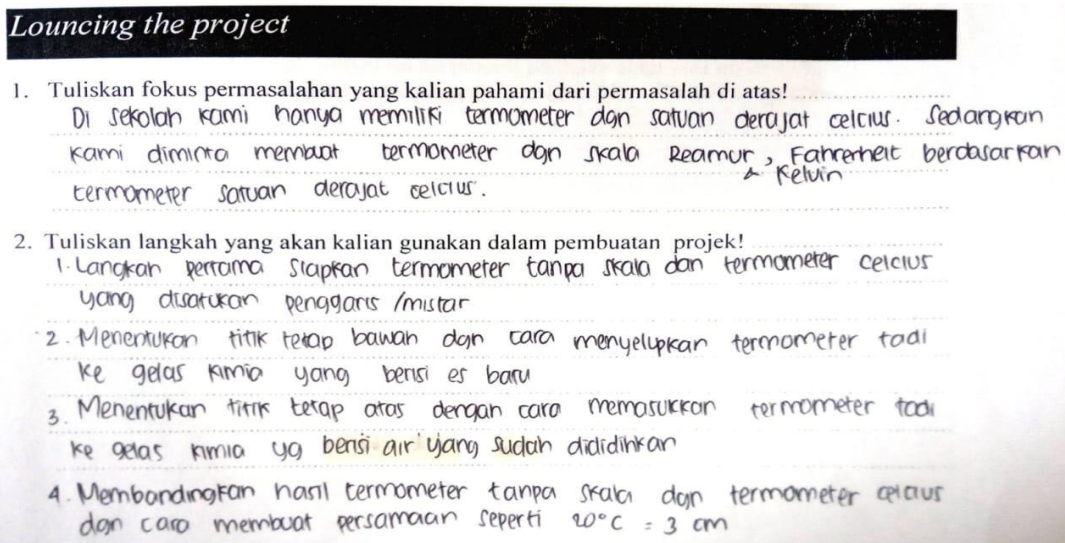 Louncing the project
1. Tuliskan fokus permasalahan yang kalian pahami dari permasalah di atas!
Di sekolah kami hanya memiliki termometer dgn satuan derajat celcius. Sedangkan
kami diminta membuat termometer dgn skala Reamur, Fahrenheit berdasarkan
& Kelvin
termometer satuan derajat celcius.
2. Tuliskan langkah yang akan kalian gunakan dalam pembuatan projek!
1. Langkah pertama siapkan termometer tanpa skala dan termometer celcius
yang disatukan penggaris /mistar
2. Menentukan titik tetap bawah dgn cara menyelupkan termometer tadi
ke gelas kimia yang berisi es batu
3. Menentukan titik tetap atas dengan cara memasukkan termometer tadi
ke gelas kimia yg berisi air yang sudah dididihkan
4. Membandingkan hasil termometer tanpa skala dgn termometer celcius
dgn cara membuat persamaan seperti 20°C = 3 cm